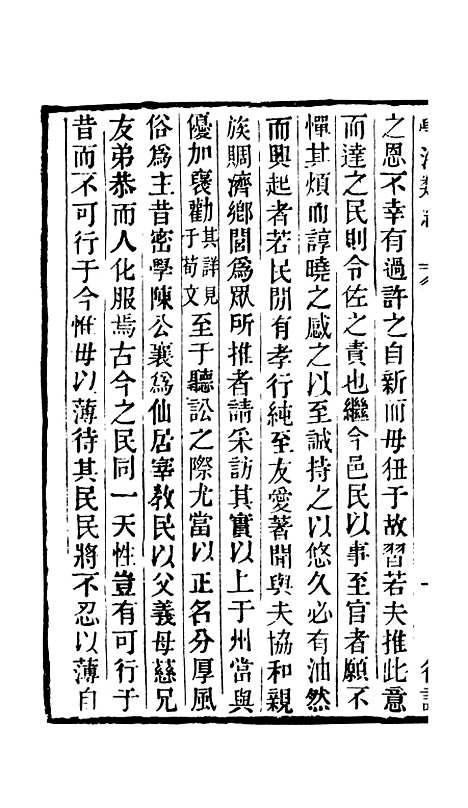 之恩不幸有過許之自新而毋狃于故習若夫推此意
而達之民則令佐之責也繼今邑民以事至官者願不
憚其煩而諄曉之感之以至誠持之以悠久必有油然
而興起者若民間有孝行純至友愛著聞與夫協和親
族賙濟鄉閭爲眾所推者請采訪其實以上于州當與
優加襃勸其詳見于荀文至于聽訟之際尤當以正名分厚風
俗爲主昔密學陳公襄爲仙居宰教民以父義母慈兄
友弟恭而人化服焉古今之民同一天性豈有可行于
昔而不可行于今惟毋以薄待其民民將不忍以薄自